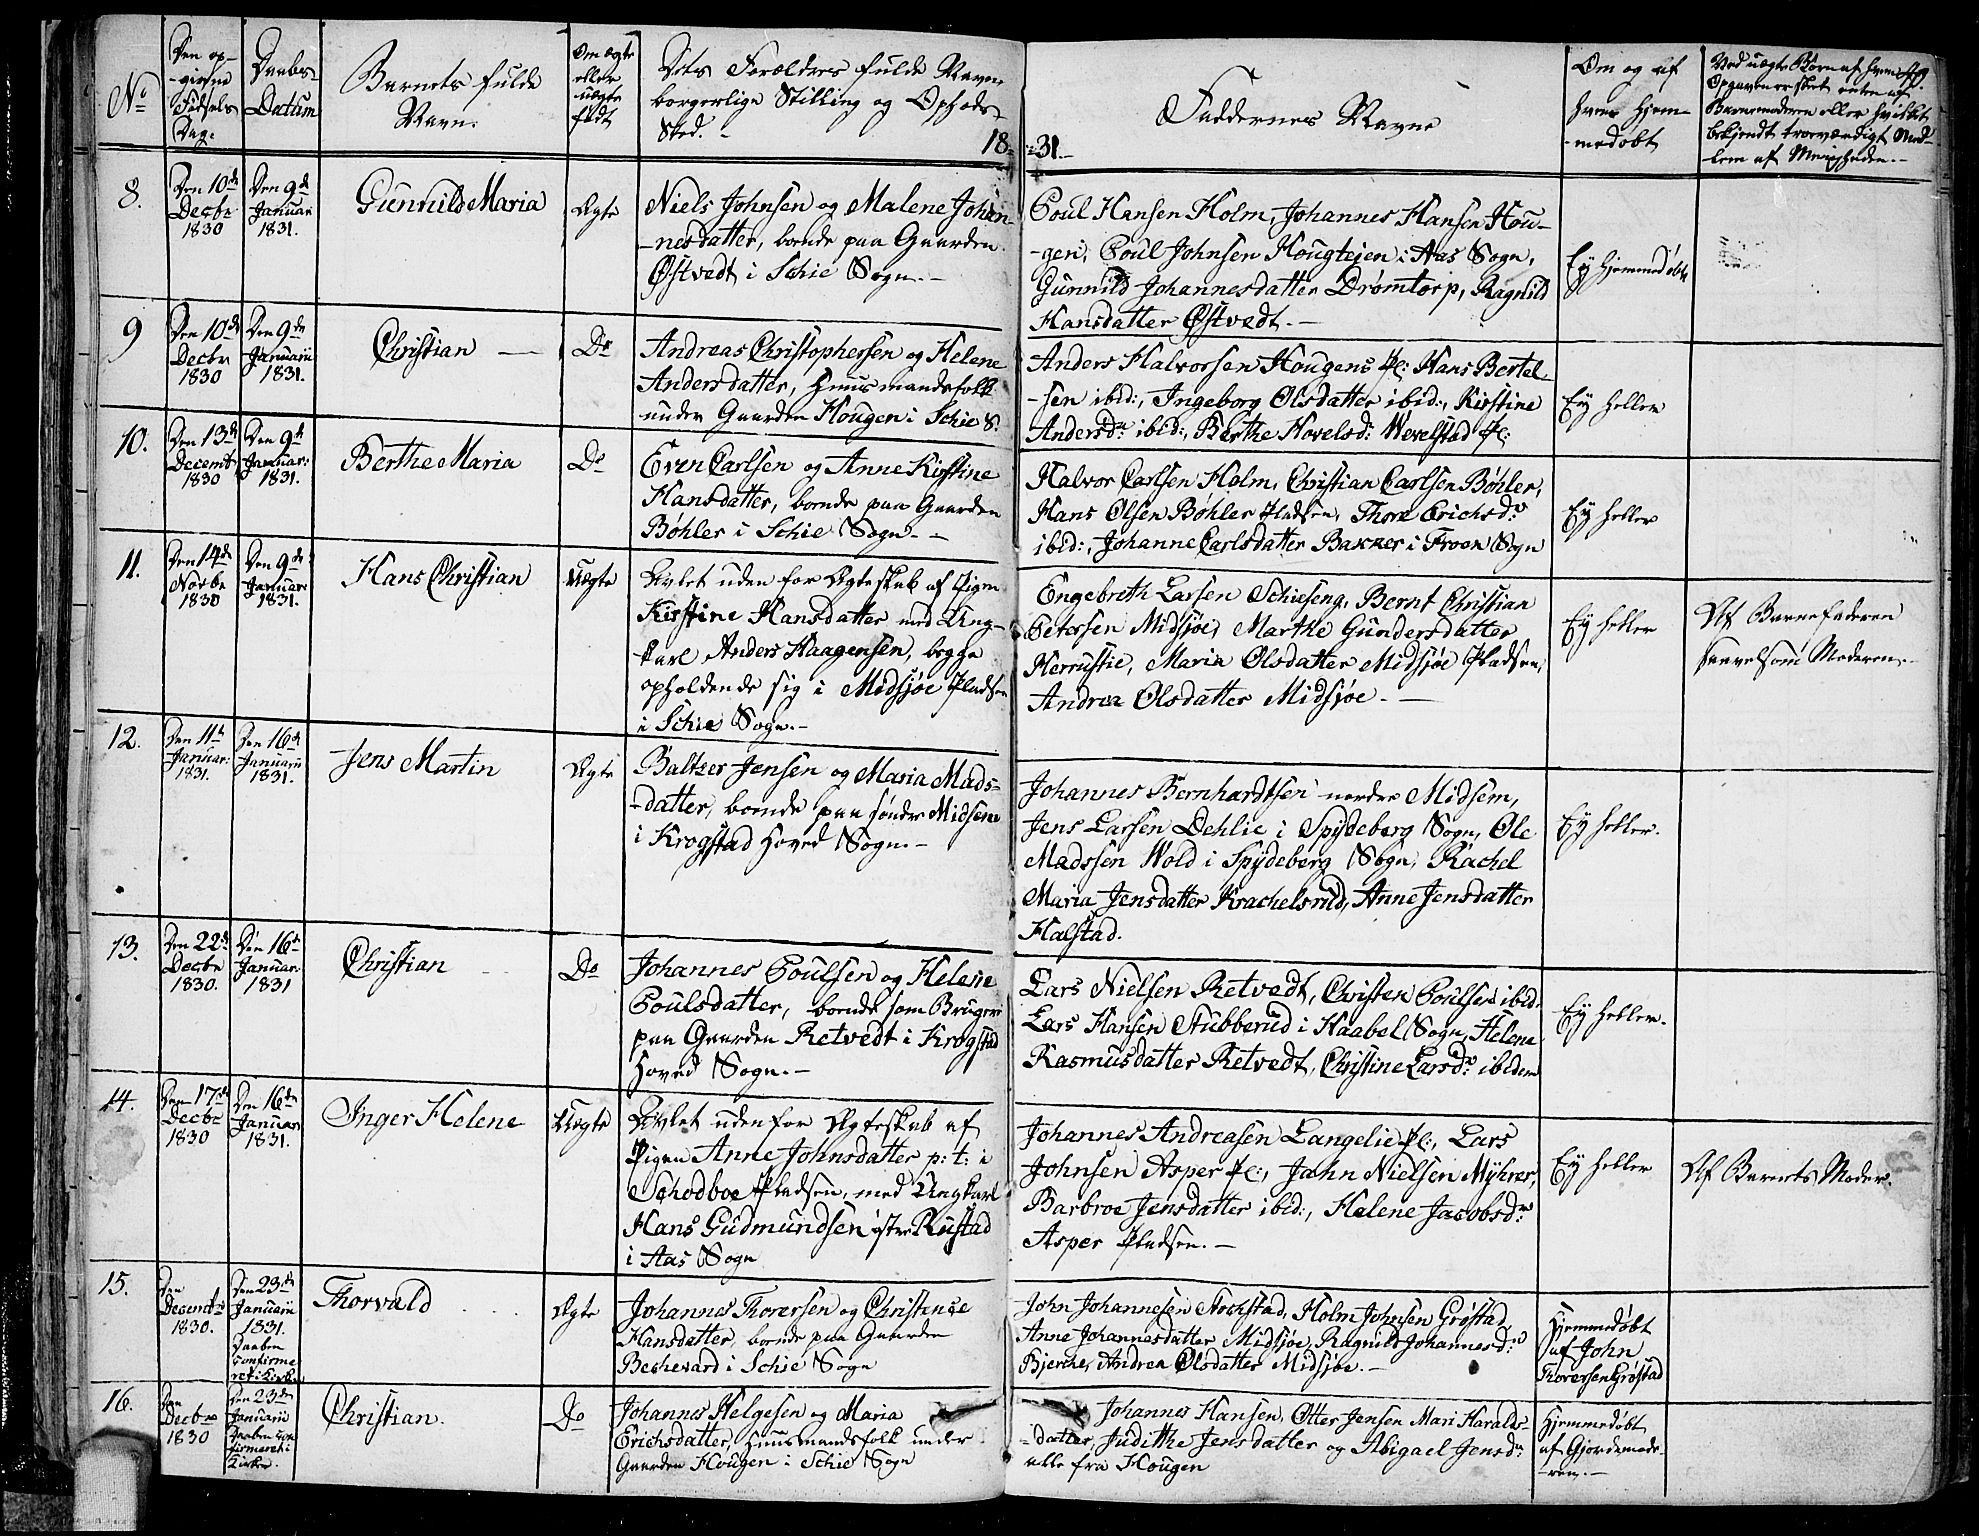 No
Den op-
-givne
Fødsels
Dag.
Daabs-
Datum
Barnets fulde
Navn.
Om ægte
eller
uægte
født
Dets Forældres fulde Navne
borgerlige Stilling og Opholds-
Sted. -
18=
=31.
Faddernes Navne
Om og af
hvem hjem-
-medøbt
Ved uægte Børn af hvem
Opgaven er skeet enten af
Barnemoderen eller hvilket
bekjendt troeværdigt Med-
lem af Menigheden.-
8.
Den 10de
Decbr
1830
Den 9de
Januar
1831.
Gunnild Maria
Ægte
Niels Johnsen og Malene Johan-
-nesdatter, boende paa Gaarden
Østvedt i Schie Sogn.-
Poul Hansen Holm, Johannes Hansen Hou-
-gen, Poul Johnsen Hougtejen i Aas Sogn,
Gunnild Johannesdatter Drømtorp, Ragnild
Hansdatter Østvedt.-
Ej hjemmedøbt
9
Den 10de
Decbr
1830
Den 9de
Januarii
1831.
Christian
Do
Andreas Christophersen og Helene
Andersdatter, Huusmandsfolk
under Gaarden Hougen i Schie S.
Anders Halvorsen Hougens Pl: Hans Bertel-
-sen ibid:, Ingeborg Olsdatter ibid:, Kirstine
Andersdr ibid:, Berthe Hovelsd: Wevelstad Pl:
Ej heller
10.
Den 13de
Decemb
1830
Den 9de
Januar:
1831.
Berthe Maria
Do
Even Carlsen og Anne Kirstine
Hansdatter, boende paa Gaarden
Bøhler i Schie Sogn.-
Halvor Carlsen Holm, Christian Carlsen Bøhler,
Hans Olsen Bøhler Pladsen, Thore Erichsdr
ibid:, Johanne Carlsdatter Bakker i Froen Sogn
Ej heller
11.
Den 14de
Novbr
1830
Den 9de
Januar
1831.
Hans Christian
Uægte
Avlet uden for Ægteskab af Pigen
Kirstine Hansdatter med Ung-
karl Anders Haagensen, begge
opholdende sig i Midsjøe Pladsen
i Schie Sogn.-
Engebreth Larsen Schieseng, Bernt Christian
Petersen Midsjøe, Marthe Gundersdatter
Herrustie, Maria Olsdatter Midsjøe Pladsen,
Andrea Olsdatter Midsjøe.-
Ej heller
Af Barnefaderen
saavelsom Moderen.-
12.
Den 11te
Januar:
1831.
Den 16de
Januarii
1831.
Jens Martin
Ægte
Baltzer Jensen og Maria Mads-
-datter, boende paa søndre Midsem
i Krogstad Hoved Sogn.-
Johannes Bernhardtsen nordre Midsem,
Jens Larsen Dehlie i Spydeberg Sogn, Ole
Madssen Wold i Spydeberg Sogn, Rachel
Maria Jensdatter Krachelsrud, Anne Jensdatter
Halstad.
Ej heller.
13.
Den 22de
Decbr
1830.
Den 16de
Januar:
1831
Christian
Do
Johannes Poulsen og Helene
Poulsdatter, boende som Bruger
paa Gaarden Retvedt i Krogstad
Hoved Sogn.-
Lars Nielsen Retvedt, Christen Poulsen ibid:
Lars Hansen Stubberud i Haabel Sogn, Helene
Rasmusdatter Retvedt, Christine Larsdr ibidem
Ej heller.
14.
Den 17de
Decbr
1830
Den 16de
Januar
1831.
Inger Helene
Uægte
Avlet uden for Ægteskab af
Pigen Anne Johnsdatter p: t: i
Schodboe Pladsen, med Ungkarl
Hans Gudmundsen østre Rustad
i Aas Sogn
Johannes Andreasen Langelie Pl:, Lars
Johnsen Asper Pl:, John Nielsen Myhrer,
Barbroe Jensdatter ibid:, Helene Jacobsdr
Asper Pladsen.-
Ej heller
Af Barnets Moder.
15.
Den
Decembr
1830.
Den 23de
Januarii
1831.
Daaben
Confirme
ret i Kirken
Thorvald
Ægte
Johannes Thorersen og Christense
Hansdatter, boende paa Gaarden
Bechevard i Schie Sogn
John Johannesen Stochstad, Holm Johnsen Grøstad,
Anne Johannesdatter Midsjøe, Ragnild Johannesdr
Bjerche, Andrea Olsdatter Midsjøe.-
Hjemmedøbt
af John
Thorersen Grøstad
16.
Den
Decbr
1830
Den 23de
Januarii
Daaben Con
firmeret i
Kirken.
Christian.
Do
Johannes Helgesen og Maria
Erichsdatter, Huusmandsfolk under
Gaarden Hougen i Schie Sogn
Johannes Hansen, Otter Jensen Mari Haralds-
-datter, Judithe Jensdatter og Abigael Jensdr
alle fra Hougen
Hjemmedøbt
af Gjordemode-
-ren.-